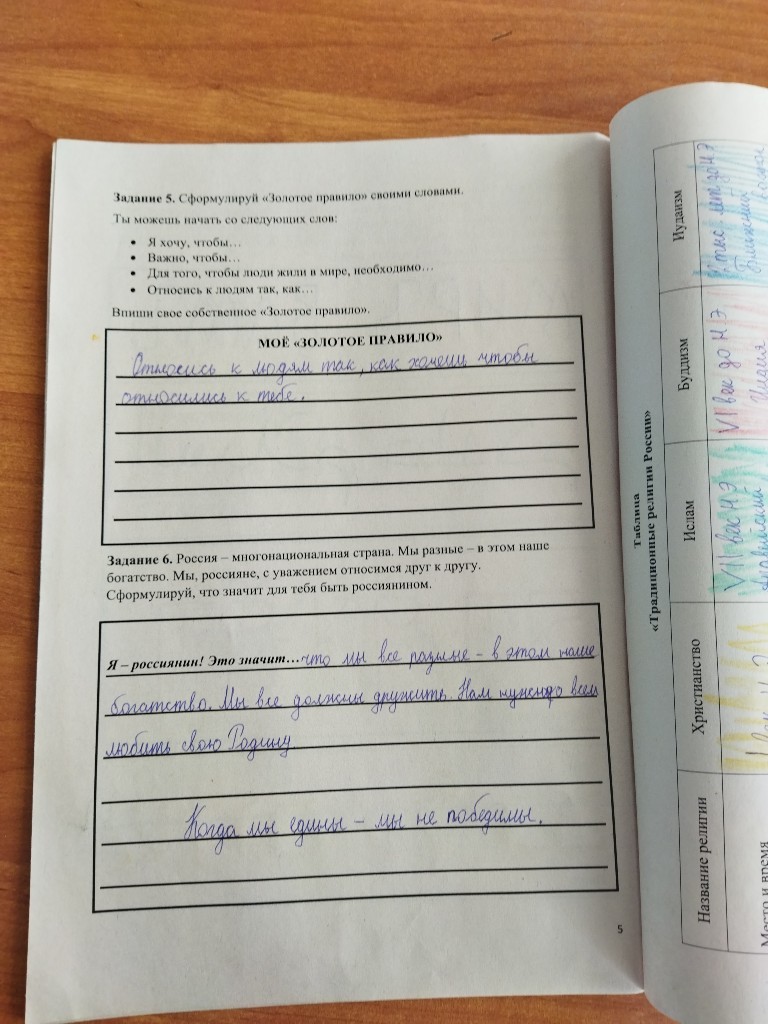 Задание 5. Сформулируй «Золотое правило» своими словами.
Ты можешь начать со следующих слов:
• Я хочу, чтобы…
• Важно, чтобы…
• Для того, чтобы люди жили в мире, необходимо…
• Относись к людям так, как…
Впиши свое собственное «Золотое правило».
МОЁ «ЗОЛОТОЕ ПРАВИЛО»
Относись к людям так, как хочешь чтобы
относились к тебе.
Задание 6. Россия – многонациональная страна. Мы разные – в этом наше
богатство. Мы, россияне, с уважением относимся друг к другу.
Сформулируй, что значит для тебя быть россиянином.
Я – россиянин! Это значит…что мы все разные - в этом наше
богатство. Мы все должны дружить. Нам нужно всем
любить свою Родину
Когда мы едины – мы не победимы.
5
Таблица
«Традиционные религии России»
Название религии
Христианство
Ислам
Буддизм
Иудаизм
Место и время
VII век Н Э
VI век до Н Э
Индия